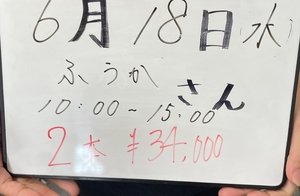 6月18日(水)
ふうかさん
10:00~15:00
2本 ¥34,000